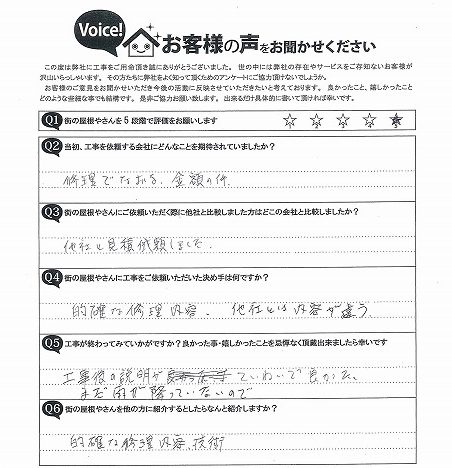 Voice!
お客様の声をお聞かせください
この度は弊社に工事をご用命頂き誠にありがとうございました。 世の中には弊社の存在やサービスをご存知ないお客様が
沢山いらっしゃいます。 その方たちに弊社をよく知って頂くためのアンケートにご協力頂けないでしょうか。
お客様のご意見をお聞かせいただき今後の活動に反映させていただきたいと考えております。 良かったこと、嬉しかったこと
どのような些細な事でも結構です。 是非ご協力お願い致します。 出来るだけ具体的に書いて頂ければ幸いです。
Q1 街の屋根やさんを5段階で評価をお願いします ☆ ☆ ☆ ☆ ★
Q2 当初、工事を依頼する会社にどんなことを期待されていましたか?
修理でなおる、金額の件
Q3 街の屋根やさんにご依頼いただく際に他社と比較しました方はどこの会社と比較しましたか?
他社に見積依頼しました
Q4 街の屋根やさんに工事をご依頼いただいた決め手は何ですか?
的確な修理内容、他社とは内容が違う
Q5 工事が終わってみていかがですか?良かった事・嬉しかったことを忌憚なく頂戴出来ましたら幸いです
工事後の説明が ていねいで良かった。
まだ雨が降っていないので
Q6 街の屋根やさんを他の方に紹介するとしたらなんと紹介しますか?
的確な修理内容、技術